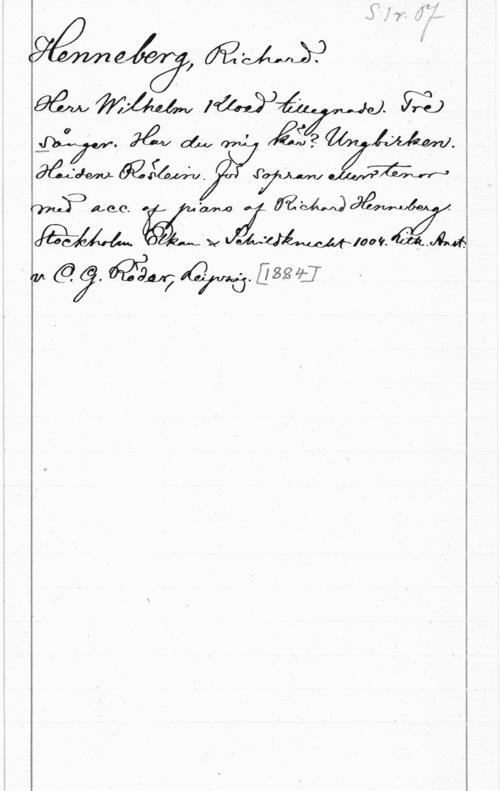 S1r. 07
Henneberg, Richard.
Herr Wilhelm Kloed tillegnade. Tre
sånger. Har du mig kär? Ungbirken.
Haiden Röslein. för sopran eller tenor
med acc. af piano af Richard Henneberg.
Stockholm Elkan & Schildknecht 1004. Lith. Anst.
v. C. G. Röder, Leipzig. [1884]